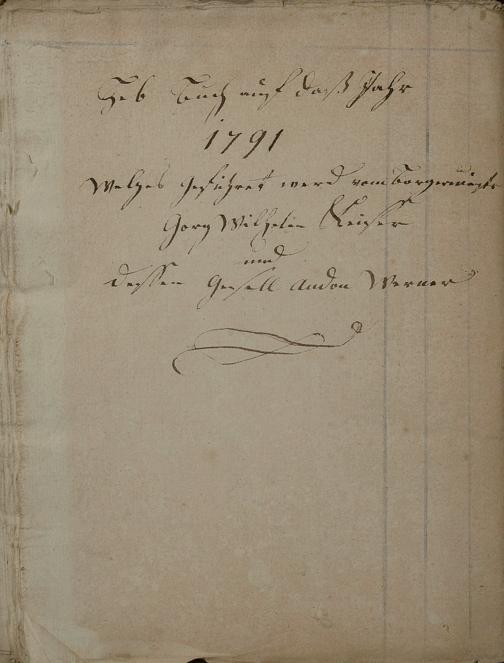 Heb Buch auf daß Jahr
1791
Welches geführet werd vom Borgermeister
Gorg Wilhelm Keiser
und
dessen Gesell Andon Werner